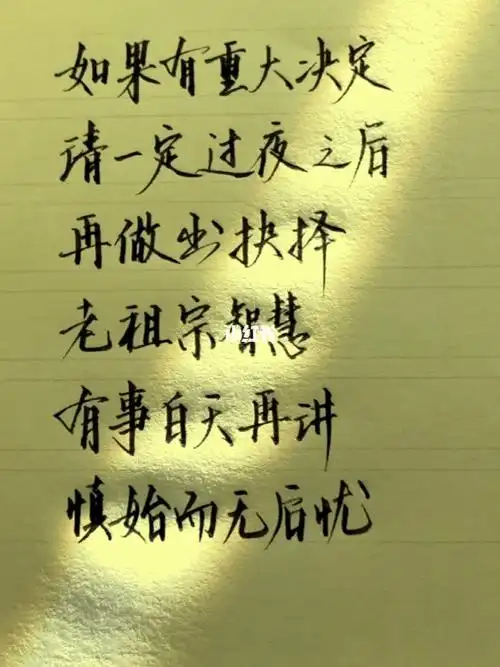 如果有重大决定
请一定过夜之后
再做出抉择
老祖宗智慧
有事白天再讲
慎始而无后忧